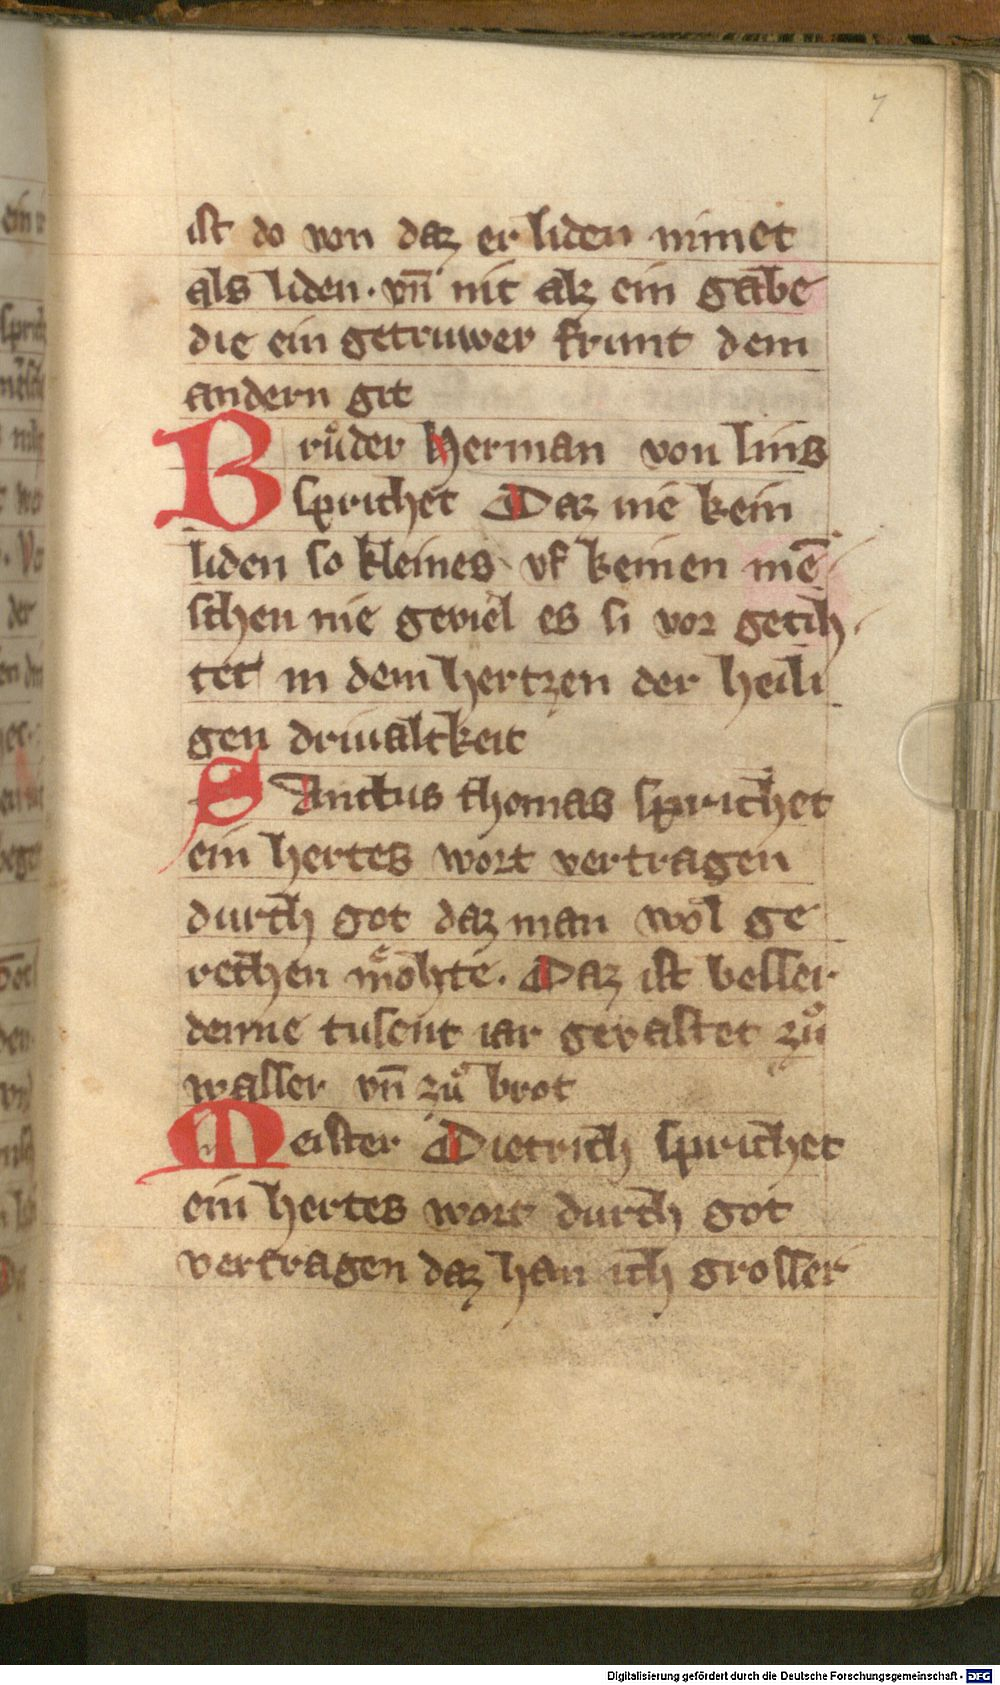 7
ist do von daz er liden nimet
als liden. vn̄ nit alz ein gabe
die ein getruwer frunt dem
andern git
Bruͦder Herman von linis
sprichet Daz nie kein
liden so kleines vf keinen mē
schen nie geviel es si vor getih
tet in dem hertzen der heili
gen driualtkeit
SAnctus thomas sprichet
ein hertes wort vertragen
durch got daz man wol ge
rechen moͤhte. Daz ist besser
denne tusent iar gevastet zuͦ
wasser vn̄ zuͦ brot
Meister Dietrich sprichet
ein hertes wort durch got
vertragen daz han ich grosser
Digitalisierung gefördert durch die Deutsche Forschungsgemeinschaft - DFG